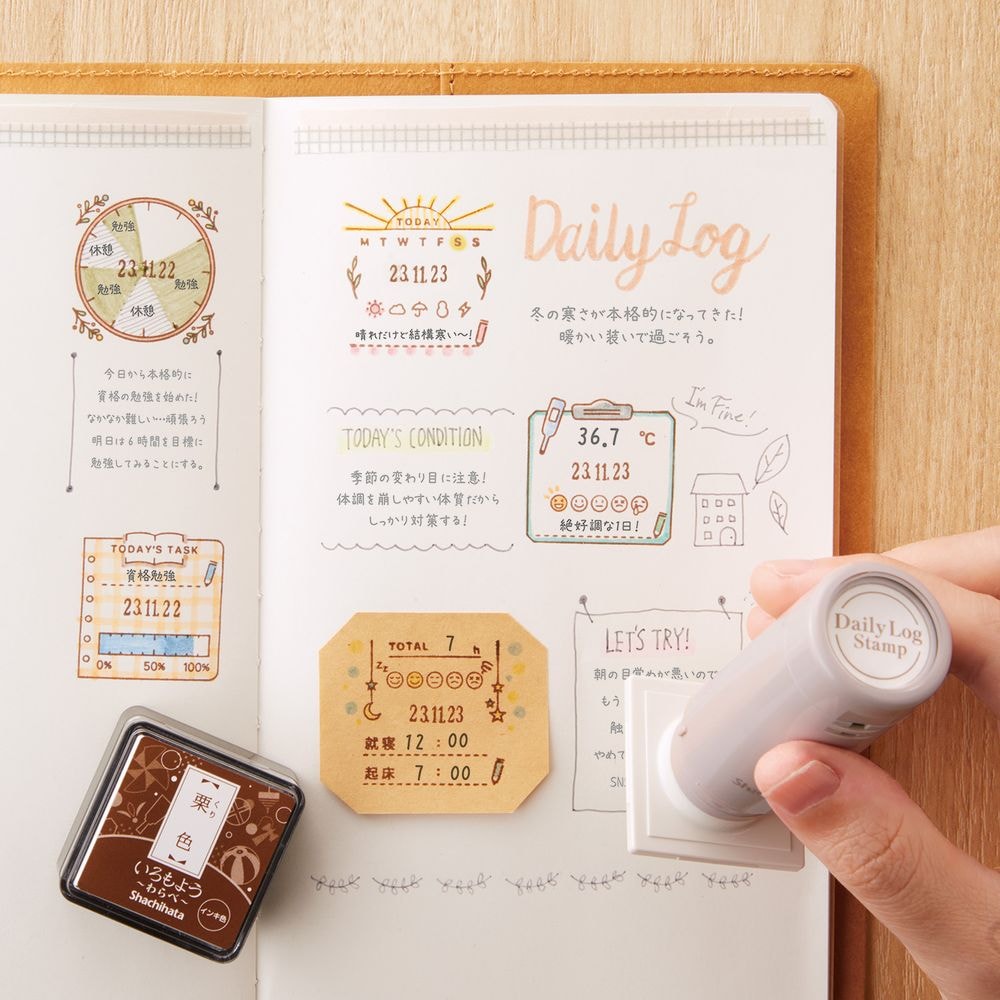 勉強
休憩
23.11.22
勉強
勉強
休憩
今日から本格的に
資格の勉強を始めた!
なかなか難しい…頑張ろう
明日は6時間を目標に
勉強してみることにする。
TODAY'S TASK
資格勉強
23.11.22
0% 50% 100%
【栗色】
くり
いろもよう
~わらべ~
Shachihata
インキ色
TODAY
M T W T F S S
23.11.23
晴れだけど結構寒い~!
Daily Log
冬の寒さが本格的になってきた!
暖かい装いで過ごそう。
TODAY'S CONDITION
季節の変わり目に注意!
体調を崩しやすい体質だから
しっかり対策する!
36.7 ℃
23.11.23
絶好調な1日!
I'm Fine!
TOTAL 7 h
zz
23.11.23
就寝 12 : 00
起床 7 : 00
LET'S TRY!
朝の目覚めが悪いので
もう
触
やめて
SN
Daily Log
Stamp